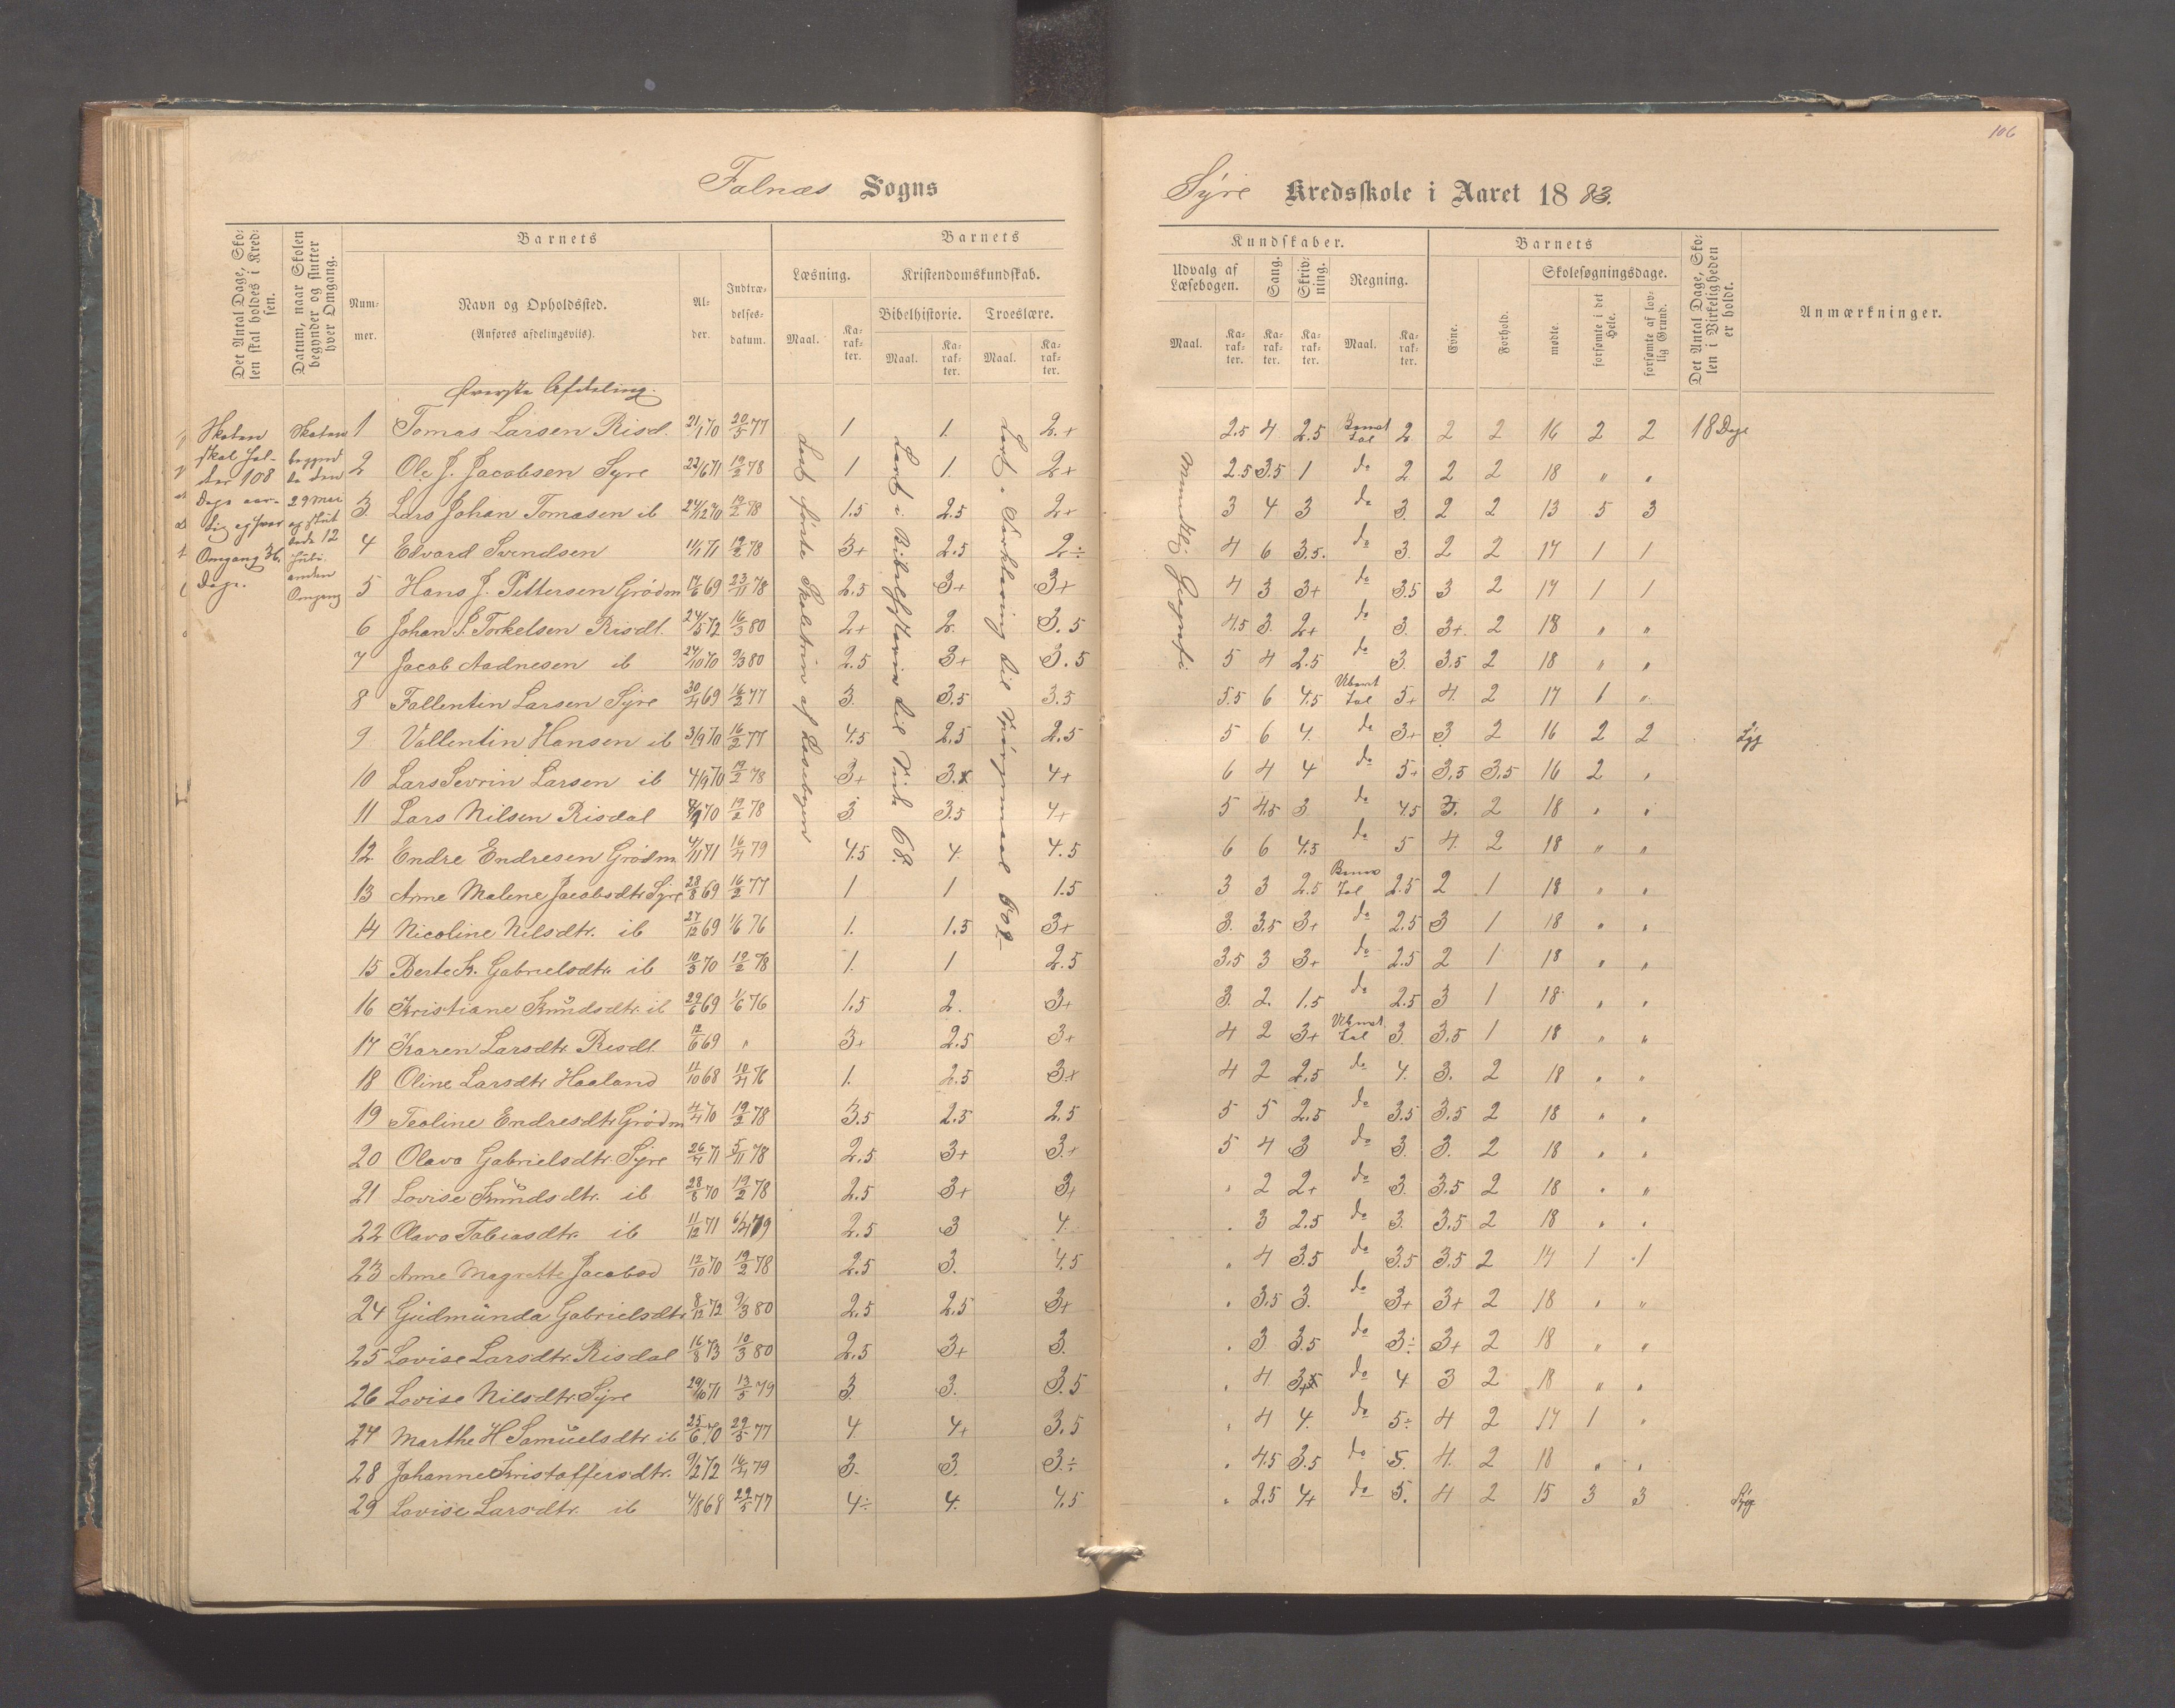 106
Falnæs Sogns
Syre Kredsskole i Aaret 1883.
Det Antal Dage, Sko-
len skal holdes i Kred-
sen.
Datum, naar Skolen
begynder og slutter
hver Omgang.
Barnets
Num-
mer.
Navn og Opholdssted.
(Anføres afdelingsviis).
Al-
der.
Indtræ-
delses-
datum.
Barnets
Læsning.
Kristendomskundskab.
Bibelhistorie. Troeslære.
Maal. Ka-
rak-
ter. Maal. Ka-
rak-
ter. Maal. Ka-
rak-
ter.
Kundskaber.
Udvalg af
Læsebogen.
Sang.
Skriv-
ning.
Regning.
Maal. Ka-
rak-
ter. Ka-
rak-
ter. Ka-
rak-
ter. Maal. Ka-
rak-
ter.
Barnets
Evne.
Forhold.
Skolesøgningsdage.
mødte.
forsømte i det
Hele.
forsømte af lov-
lig Grund.
Det Antal Dage, Sko-
len i Virkeligheden
er holdt.
Anmærkninger.
Øverste Afdeling.
Skolen
skal hol-
des 108
Dage aar-
lig og hver
Omgang 36
Dage.
Skolen
begynd
te den
29 Mai
og slut
tede 12
Juli.
anden
Omgang
Læst første Skoletrin af Læsebogen
Lært i Bibelhistorie til Side 68.
Lært i Forklaring til Spørgsmaal 602
Mundtlig Geografi
1 Tomas Larsen Risd. 21/1 70 20/5 77 1 1. 2.+ 2.5 4 2.5 Benævt Tal 2 2 2 16 2 2 18 Dage
2 Ole J. Jacobsen Syre 22/6 71 19/2 78 1 1. 2+ 2.5 3.5 1 do 2 2 2 18 " "
3. Lars Johan Tomasen ib 24/12 70 19/2 78 1.5 2.5 2+ 3 4 3 do 3. 2 2 13 5 3
4 Edvard Svendsen 11/1 71 19/2 78 3+ 2.5 2÷ 4 6 3.5. do 3. 2 2 17 1 1
5 Hans J. Pettersen Grødm 17/6 69 23/11 78 2.5 3+ 3+ 4 3 3+ do 3.5 3 2 17 1 1
6 Johan S. Torkelsen Risdl. 24/5 72 16/3 80 2+ 2. 3.5 4.5 3. 2+ do 3. 3+. 2 18 " "
7 Jacob Aadnesen ib 24/10 70 9/3 80 2.5 3+ 3.5 5 4 2.5 do 3. 3.5 2 18 " "
8 Fallentin Larsen Syre 30/4 69 16/2 77 3. 3.5 3.5 5.5 6 4.5 Ubevt Tal 5+ 4. 2 17 1 "
9 Vallentin Hansen ib 3/9 70 16/2 77 4.5 2.5 2.5 5 6 4. do 3+ 3 2 16 2 2 Syg
10 Lars Sevrin Larsen ib 4/9 70 19/2 78 3+ 3.x 4+ 6 4 4 do 5+ 3.5 3.5 16 2 "
11 Lars Nilsen Risdal 8/9 70 19/2 78 3 3.5 4+ 5 4.5 3 do 4.5 3. 2 18 " "
12 Endre Endresen Grødm 4/11 71 16/4 79 4.5 4. 4.5 6 6 4.5 do 5 4. 2 18 " "
13 Anne Malene Jacobsdtr Syre 28/8 69 16/2 77 1 1 1.5 3 3 2.5 Benæv Tal 2.5 2 1 18 " "
14 Nicoline Nilsdtr. ib 27/12 69 1/6 76 1. 1.5 3+ 3. 3.5 3+ do 2.5 3 1 18 " "
15 Berte K. Gabrielsdtr. ib 10/3 70 19/2 78 1. 1 2.5 3.5 3 3+ do 2.5 2 1 18 " "
16 Kristiane Knŭdsdtr. ib 29/6 69 1/6 76 1.5 2. 3+ 3. 2. 1.5 do 2.5 3 1 18 " "
17 Karen Larsdtr. Risdl. 12/6 69 " 3+ 2.5 3+ 4 2 3+ Ubevt Tal 3. 3.5 1 18 " "
18 Oline Larsdtr Haaland 11/10 68 10/4 76 1. 2.5 3+ 4 2 2.5 do 4. 3. 2 18 " "
19 Teoline Endresdtr Grødm 4/4 70 19/2 78 3.5 2.5 2.5 5 5 2.5 do 3.5 3.5 2 18 " "
20 Olava Gabrielsdtr. Syre 26/4 71 5/11 78 2.5 3+ 3.+ 5 4 3 do 3. 3. 2 18 " "
21 Lovise Knŭdsdtr. ib 28/8 70 19/2 78 2.5 3+ 3+ " 2 2+ do 3. 3.5 2 18 " "
22 Olava Tobiasdtr. ib 11/12 71 6/4 79 2.5 3 4. " 3 2.5 do 3. 3.5 2 18 " "
23 Anne Magrette Jacobsd 12/10 70 19/2 78 2.5 3. 4.5 " 4 3.5 do 3.5 3.5 2 17 1 1
24 Gudmŭnda Gabrielsdtr 8/12 72 9/3 80 2.5 2.5 3+ " 3.5 3. do 3+ 3+ 2 18 " "
25 Lovise Larsdtr. Risdal 16/8 73 10/3 80 2.5 3+ 3. " 3 3.5 do 3÷ 3+ 2 18 " "
26 Lovise Nilsdtr. Syre 29/10 71 13/5 79 3. 3. 3.5 " 4 3+ do 4 3 2 18 " "
27 Marthe H Samŭelsdtr ib 25/6 70 29/5 77 4. 4+ 3.5 " 4 4. do 5÷ 4 2 17 1 "
28 Johanne Kristoffersdtr. 9/2 72 16/4 79 3. 3. 3÷ " 4.5 3.5 do 5. 4. 2 18 " "
29 Lovise Larsdtr. ib 4/8 68 29/5 77 4÷ 4. 4.5 " 2.5 4+ do 5. 4 2 15 3 3 Syg